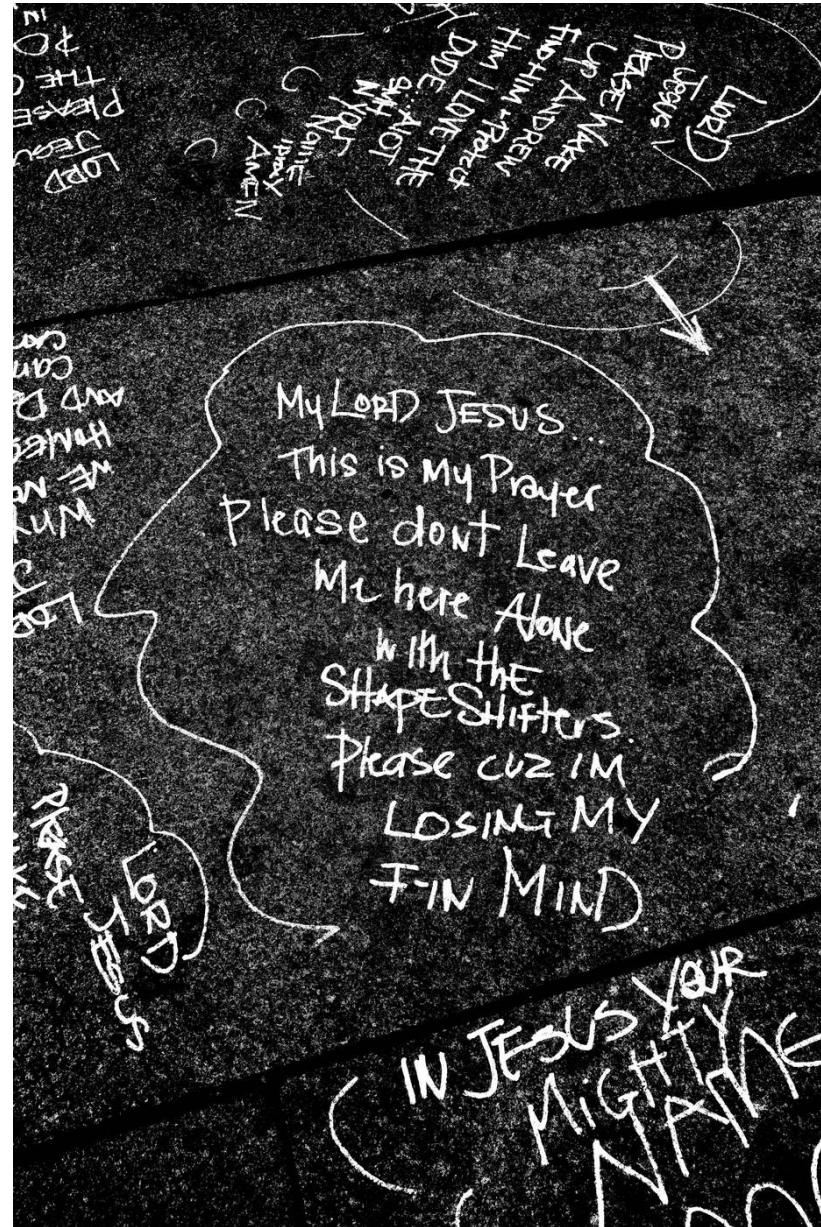 LORD
JESUS
PLEASE WAKE
UP ANDREW
FIND HIM & Protect
HIM I LOVE THE
DUDE
A LOT
N YOUR
Name
I pray
AMEN
LORD
JESU
PLEASE
THE
My LORD JESUS...
This is My Prayer
Please dont Leave
Me here Alone
with thE
SHAPESHIfters.
Please cuz IM
LOSING MY
F-IN MIND.
AND
WE
WHY
LORD
JESUS
PLEASE
IN JESUS YOUR
MiGHTY
NAME